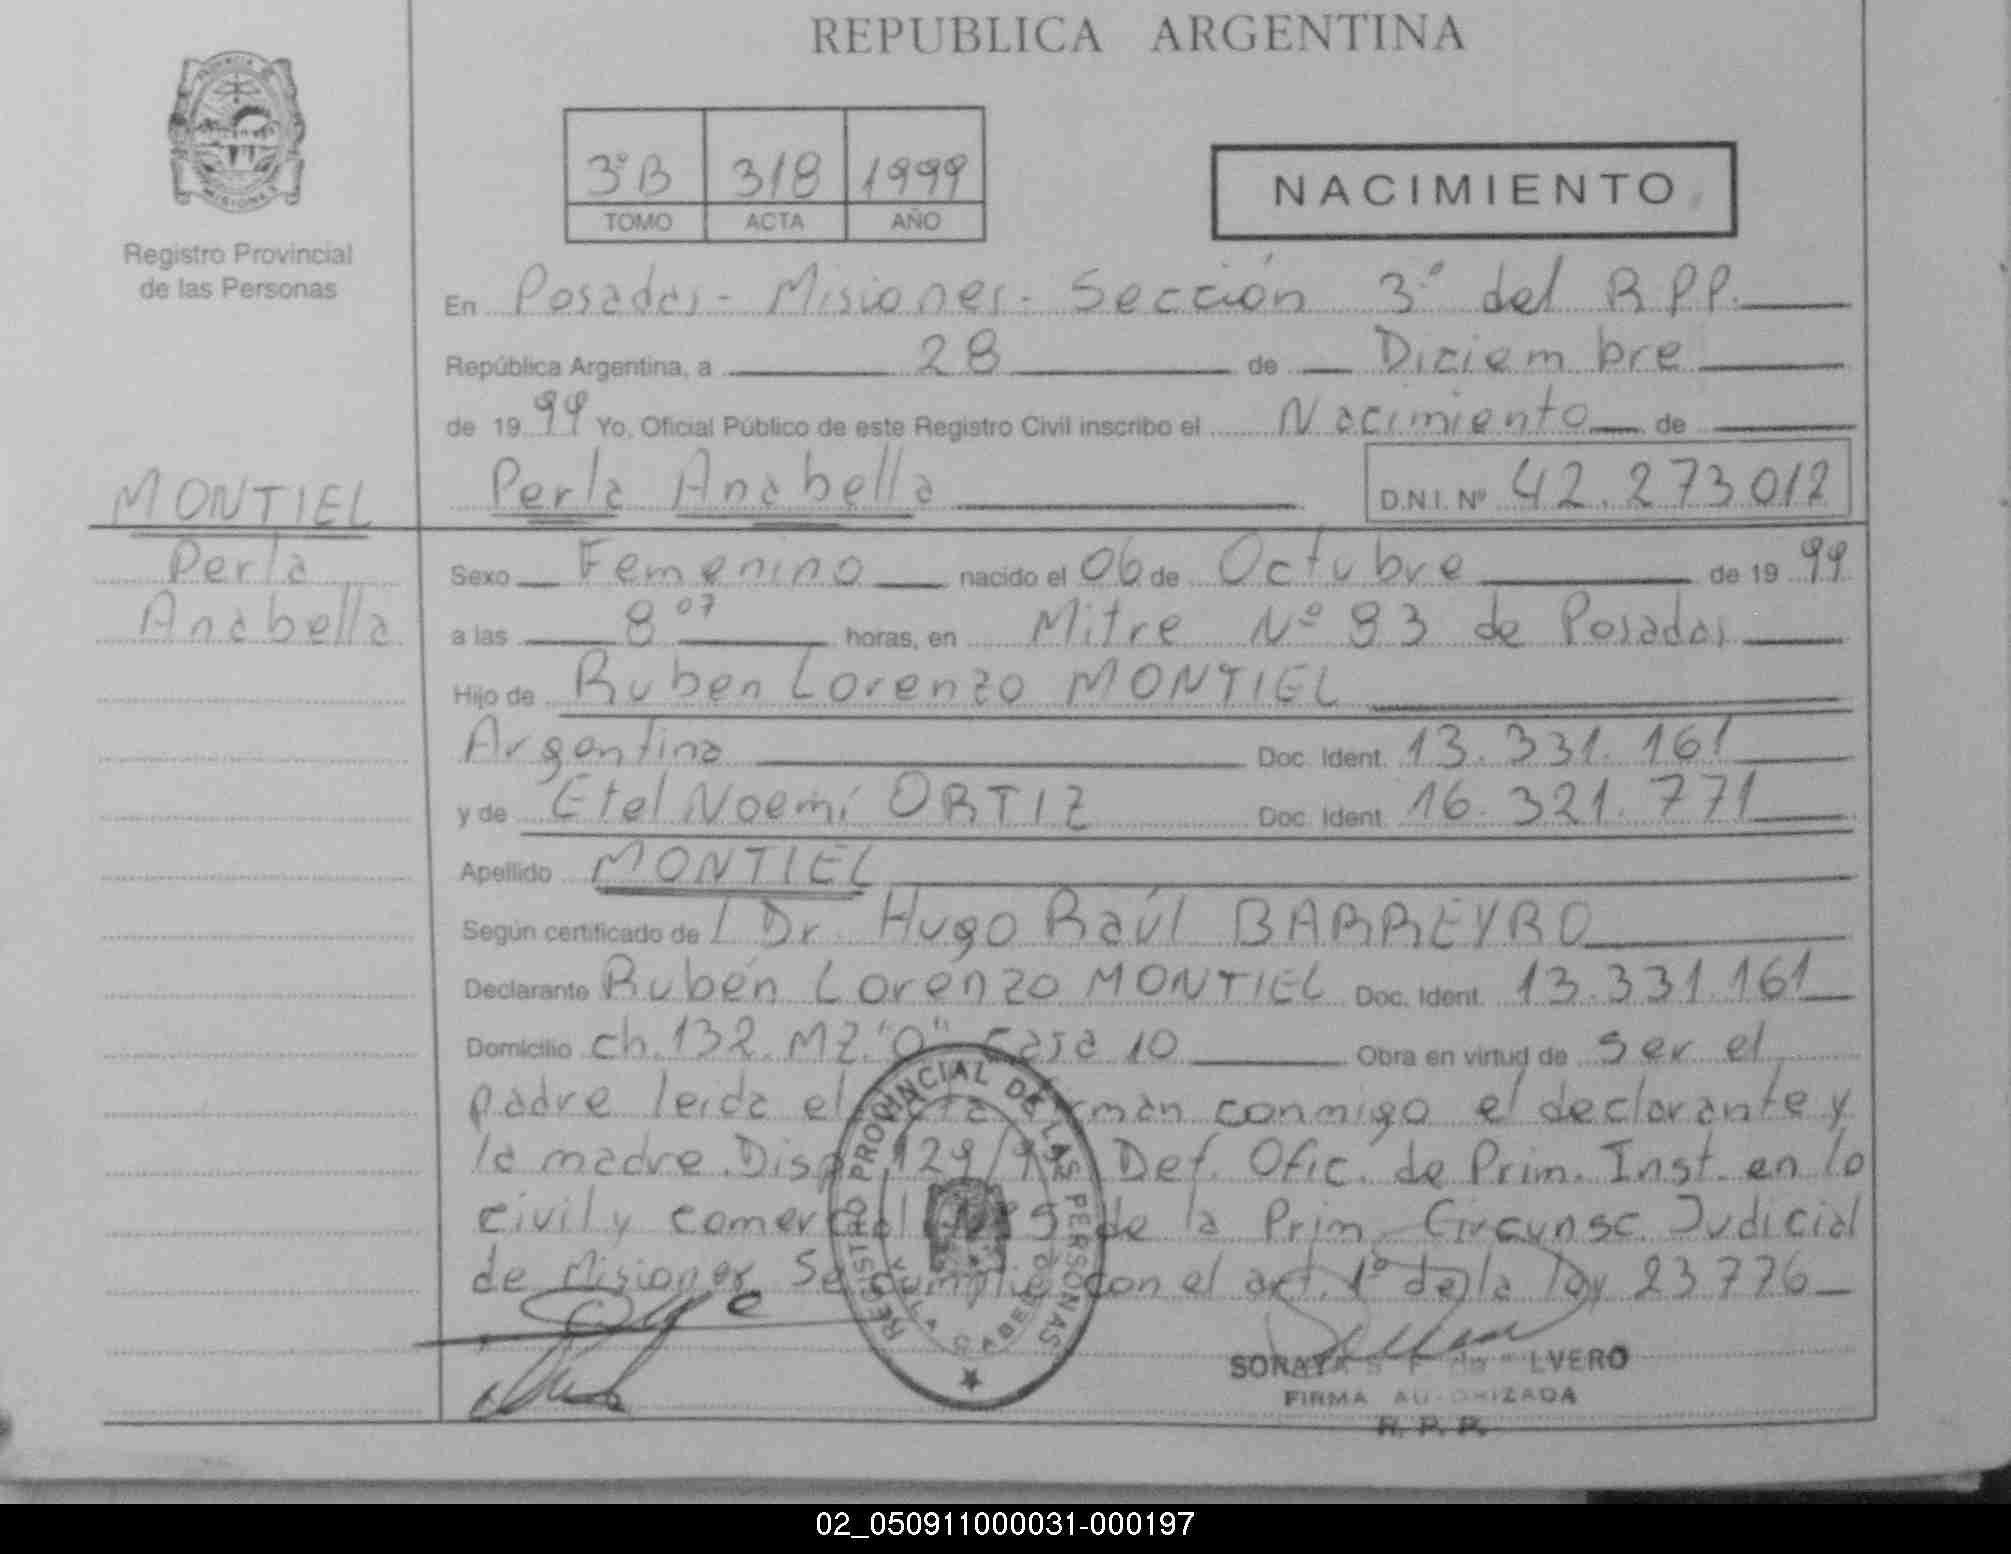 REPUBLICA ARGENTINA
PROVINCIA DE MISIONES
Registro Provincial
de las Personas
3ºB 318 1999
TOMO ACTA AÑO
NACIMIENTO
En Posadas - Misiones - Sección 3º del R.P.P.
República Argentina, a 28 de Diciembre
de 1999 Yo, Oficial Público de este Registro Civil inscribo el Nacimiento de
Perla Anabella D.N.I. Nº 42.273.012
MONTIEL
Perla
Anabella
Sexo Femenino nacido el 06 de Octubre de 1999
a las 8 07 horas, en Mitre Nº 93 de Posadas
Hijo de Ruben Lorenzo MONTIEL
Argentina Doc. Ident. 13.331.161
y de Etel Noemí ORTIZ Doc. Ident. 16.321.771
Apellido MONTIEL
Según certificado de l Dr. Hugo Raúl BARREYRO
Declarante Rubén Lorenzo MONTIEL Doc. Ident. 13.331.161
Domicilio ch. 132. MZ. "O" casa 10 Obra en virtud de ser el
padre leida el acta firman conmigo el declarante y
la madre. Disp. 129/ Def. Ofic. de Prim. Inst. en lo
civil y comercial Nº5 de la Prim. Circunsc. Judicial
de Misiones Se cumplió con el art. 1º de la ley 23776
REGISTRO PROVINCIAL DE LAS PERSONAS
VILLA CABELLO
SORAYA LVERO
FIRMA AUTORIZADA
R. P. P.
02_050911000031-000197